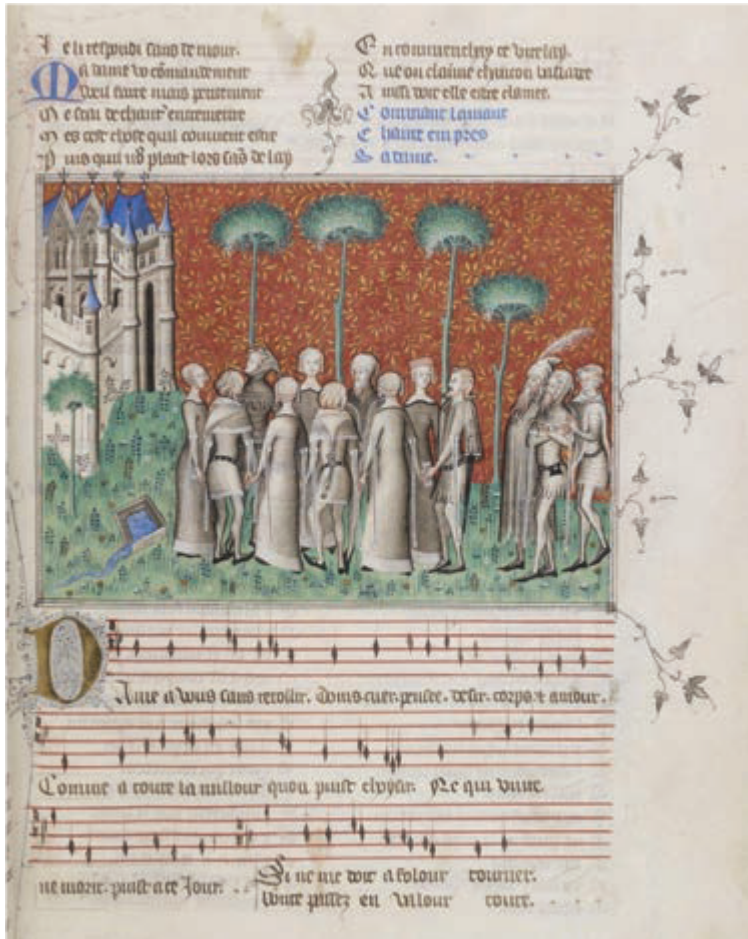 Je li respondi sans demour.
Ma dame vo cōmandement
Vueil faire mais petitement
Me scai de chanter entremettre
Mes cest chose quil couvient estre
Puis quil vꝰ plaist lors sās delay
Encommenchay ce virelay
Que on claime chancon balladee
Ainssi doit elle estre clamee.
Comment lamant
Chante empres
Sa dame.
Dame a vous sans retollir. Doins cuer. pensee. desir. corps & amour.
Comme a toute la millour quon puist choysir. Ne qui vivre
ne morir. puist a ce Jour. Si ne me doit a folour tourner.
en valour toute.